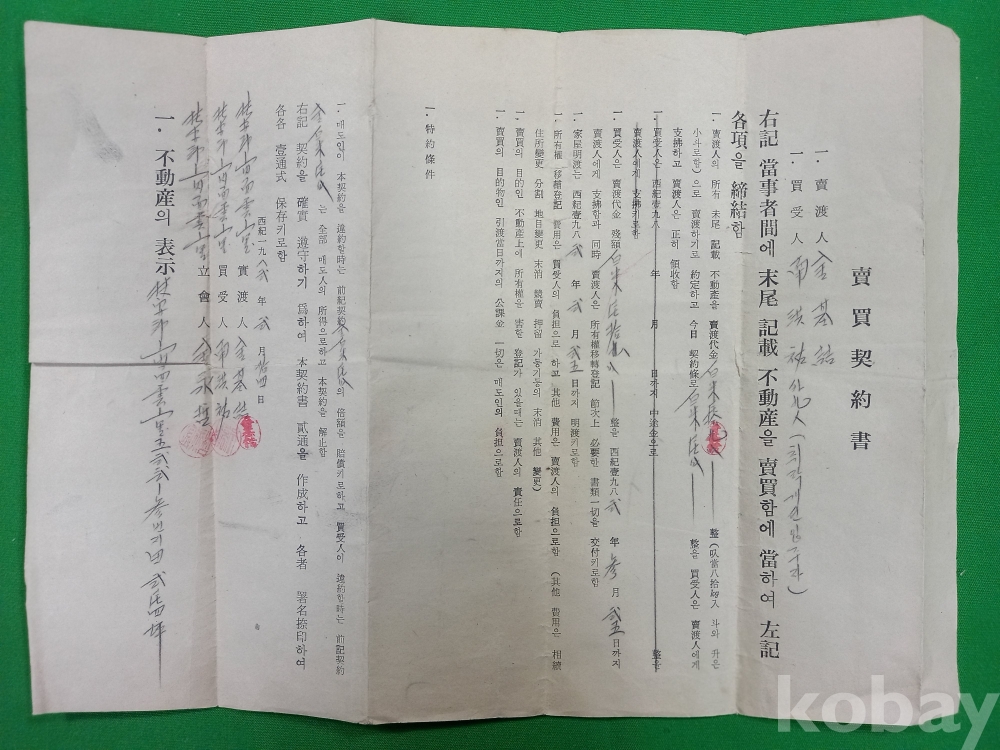 賣買契約書
一. 賣渡人 金基結
一. 買受人
右記 當事者間에 末尾 記載 不動産을 賣買함에 當하여 左記
各項을 締結함
一. 賣渡人의 所有 末尾 記載 不動産을 賣渡代金 白米 整(叺當八拾kg入 斗와 升은
小斗로함)으로 賣渡하기로 約定하고 今日 契約條로 白米 整을 買受人은 賣渡人에게
支拂하고 賣渡人은 正히 領收함
一. 買受人은 西紀壹九八 年 月 日까지 中途金으로 整을
賣渡人에게 支拂키로함
一. 買受人은 賣渡代金 殘額 白米 整을 西紀壹九八弐 年 參 月 日까지
賣渡人에게 支拂함과 同時 賣渡人은 所有權移轉登記 節次上 必要한 書類一切을 交付키로함
一. 家屋明渡는 西紀壹九八弐 年 弐 月 日까지 明渡키로함
一. 所有權 移轉登記 費用은 買受人의 負担으로 하고 其他 費用은 賣渡人의 負担으로함 (其他 費用은 相續
住所變更 分割 地目變更 末消 競賣 押留 가등기등의 末消 其他 變更)
一. 賣買의 目的인 不動産上에 所有權을 害할 登記가 있을때는 賣渡人의 責任으로함
一. 賣買의 目的物인 引渡當日까지의 公課金 一切은 매도인의 負担으로함
一. 特約條件
一. 매도인이 本契約을 違約할時는 前記契約 의 倍額을 賠償키로하고 買受人이 違約할時는 前記契約
는 全部 매도인의 所得으로하고 本契約을 解止함
右記 契約을 確實 遵守하기 爲하여 本契約書 貳通을 作成하고 各者 署名捺印하여
各各 壹通式 保存키로함
西紀一九八弐 年 弐 月 拾四 日
賣渡人 金基結
買受人
立會人 金永
一. 不動産의 表示
kobay